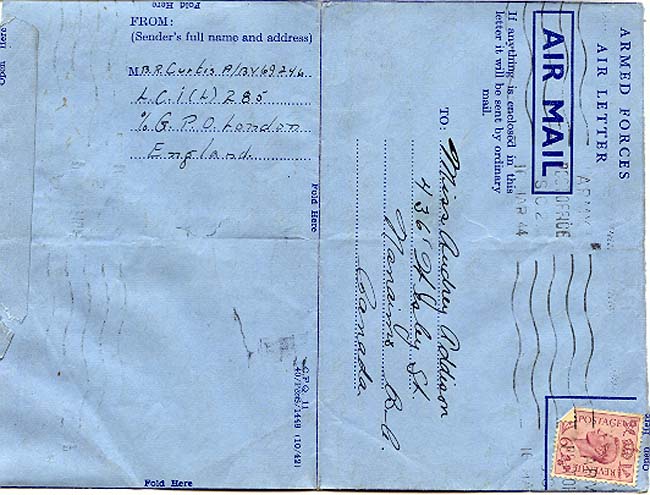 Fold Here
FROM:
(Sender's full name and address)
M B.R. Curtis A/B V 69746
L.C.I.(L) 285
% G.P.O. London
England
Fold Here
Fold Here
C.P.Q. 11
40/Pos5/1449 (10/42)
Open Here
ARMED FORCES
AIR LETTER
AIR MAIL
If anything is enclosed in this
letter it will be sent by ordinary
mail.
TO: Miss Audrey Addison
436 Wesley St.
Nanaimo B.C.
Canada
POST OFFICE
POSTAGE
REVENUE
Open Here